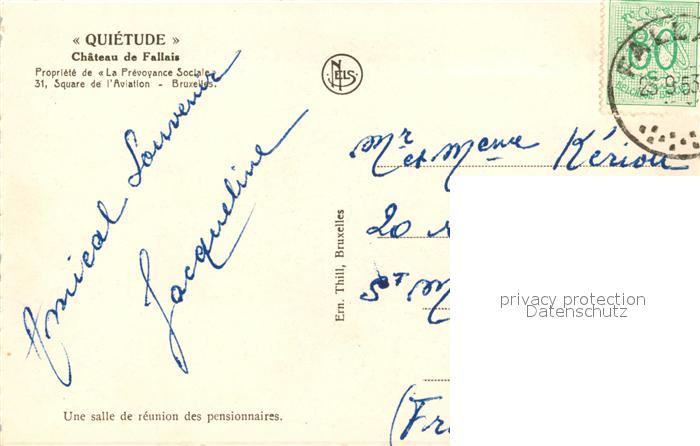 « QUIÉTUDE »
Château de Fallais
Propriété de « La Prévoyance Sociale »
31, Square de l'Aviation - Bruxelles.
NELS
FALLA
23-9-53
BELGIE-BEL
Amical Souvenir
Jacqueline
Mr
et Meme Kériou
20
St M
(Fr
Ern. Thill, Bruxelles
privacy protection
Datenschutz
Une salle de réunion des pensionnaires.